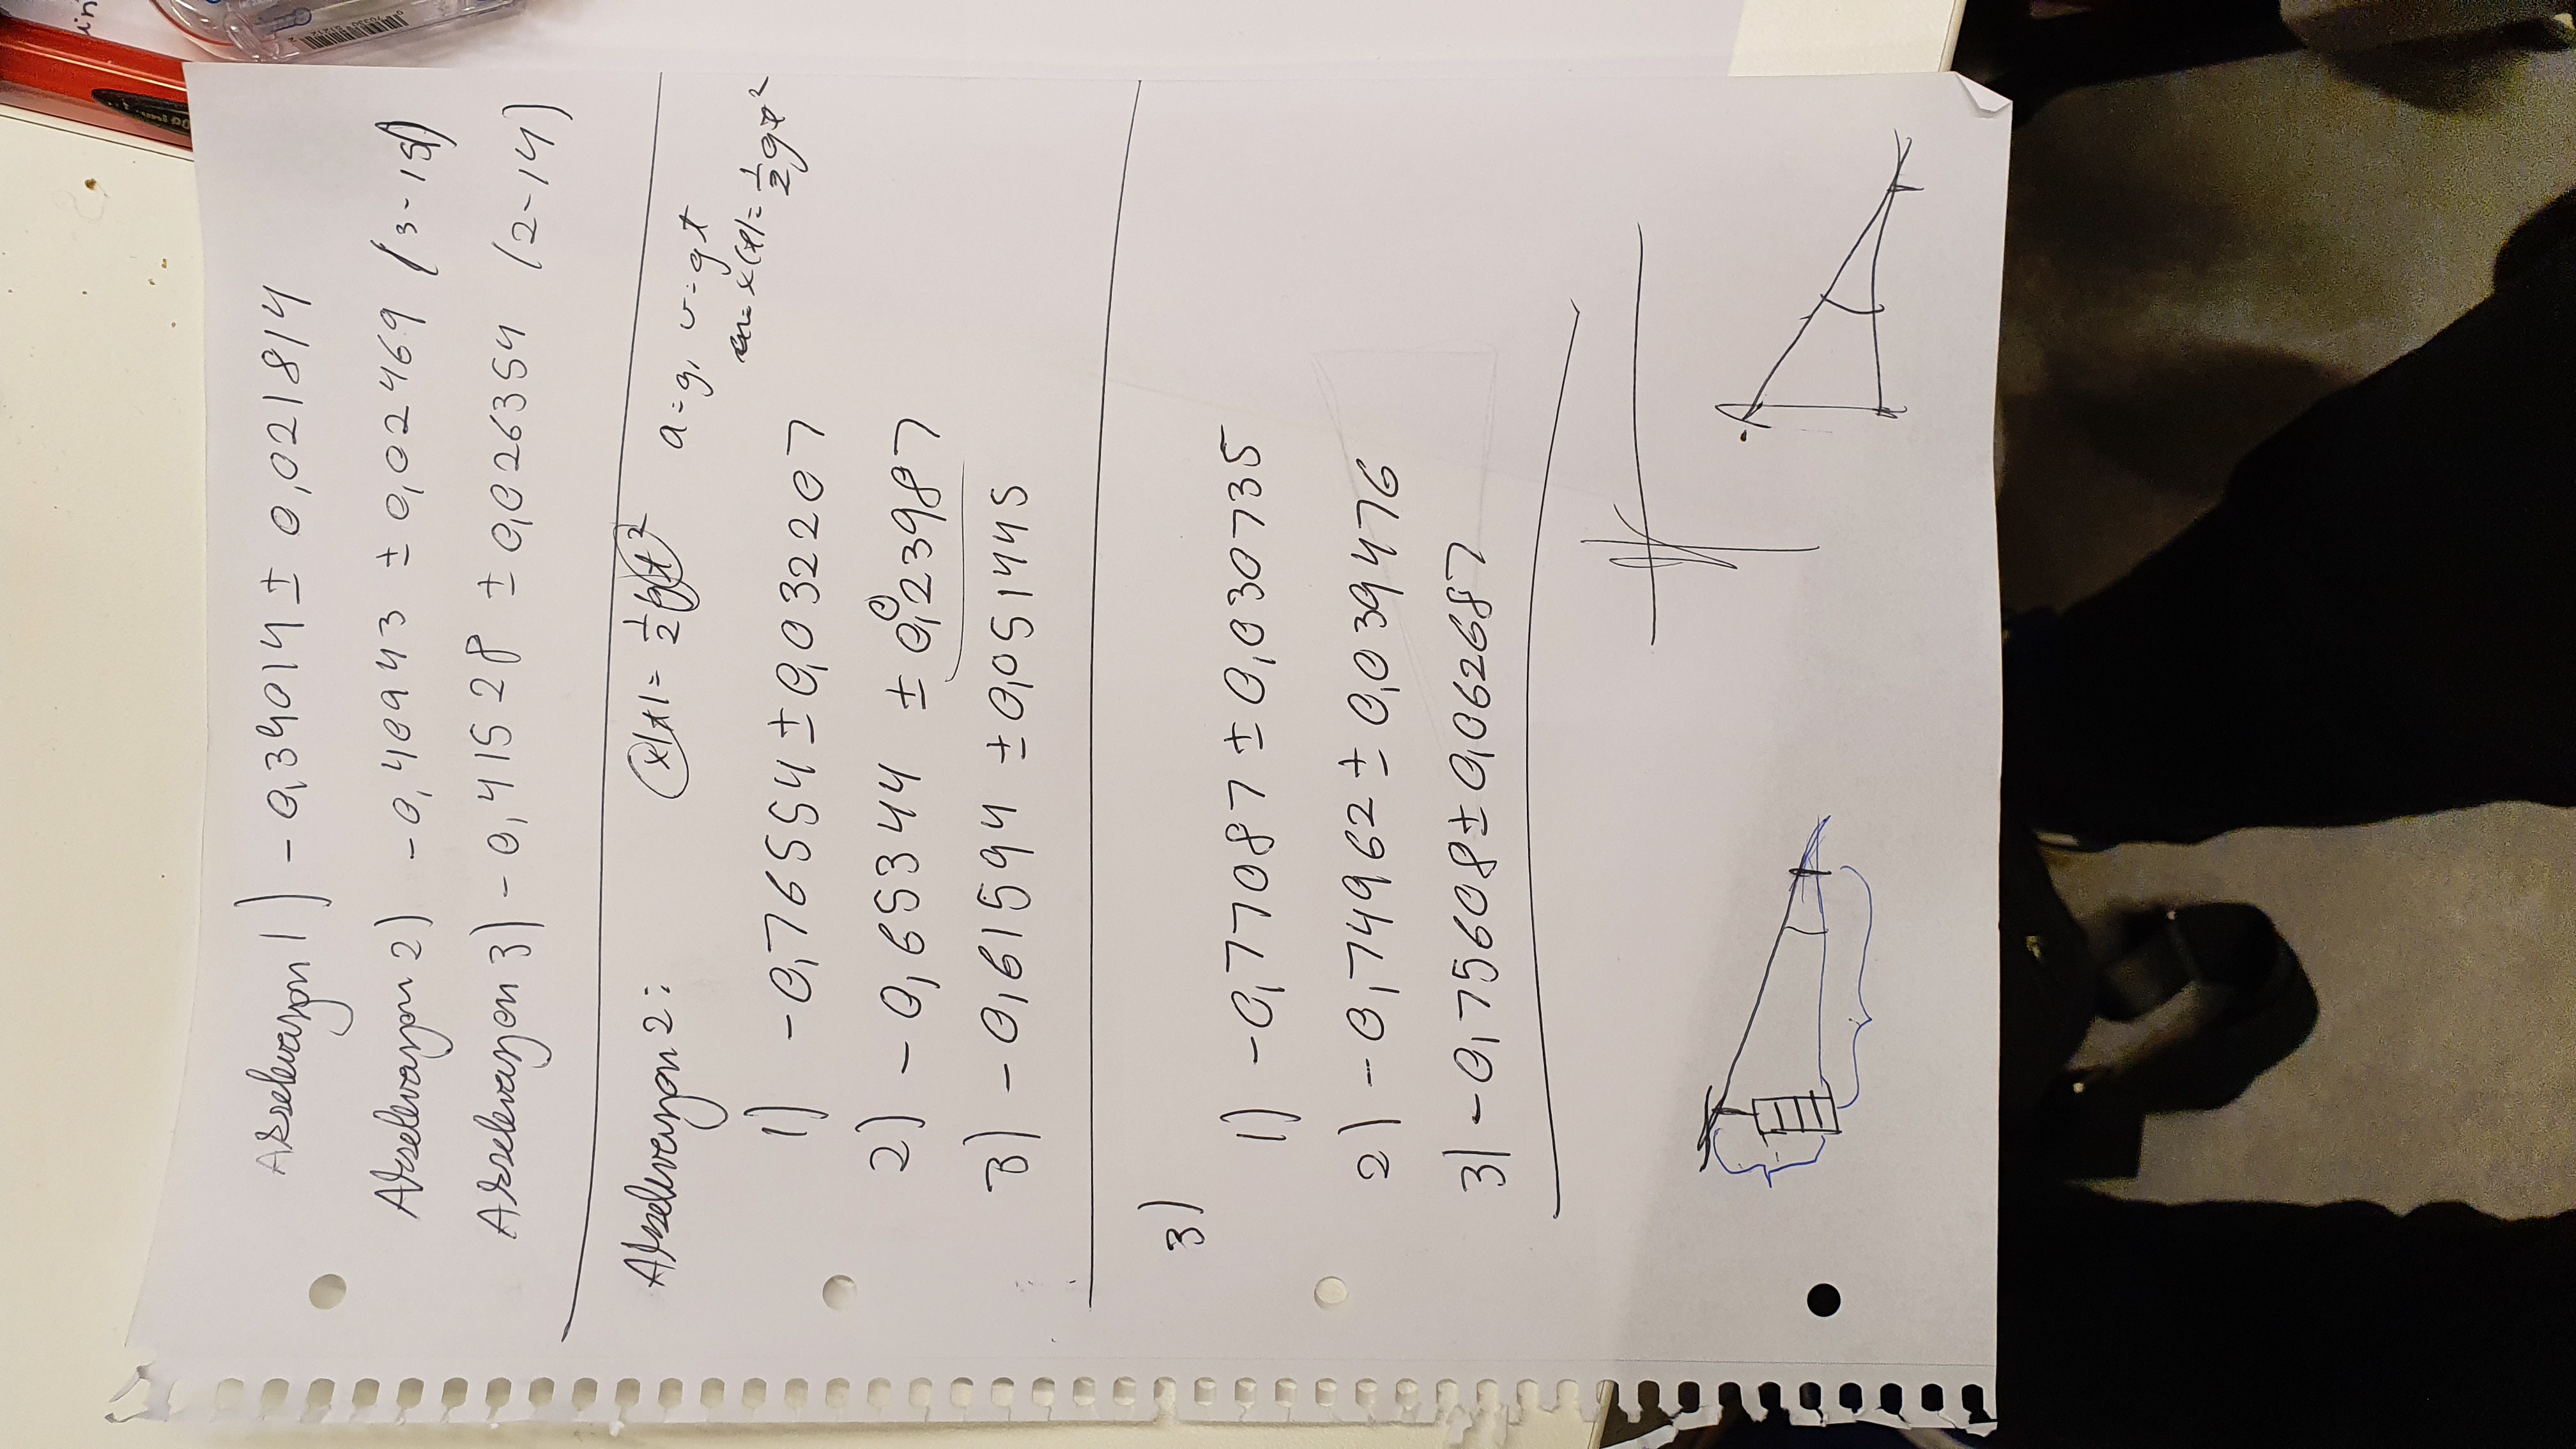 Akselerasjon 1) - 0,34014 ± 0,021814
Akselerasjon 2) - 0,40943 ± 0,02469 (3-15)
Akselerasjon 3) - 0,41528 ± 0,026354 (2-14)
Akselerasjon 2: x(t) = 1/2 g t²
a = g, v = gt
x(t) = 1/2 gt²
1) -0,76554 ± 0,032207
2) - 0,65344 ± 0,023987
3) - 0,61594 ± 0,051445
3)
1) -0,77087 ± 0,030735
2) - 0,74962 ± 0,039476
3) - 0,75608 ± 0,062687